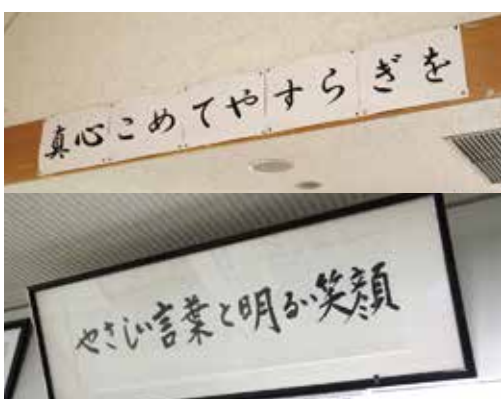 真心こめてやすらぎを
やさしい言葉と明るい笑顔